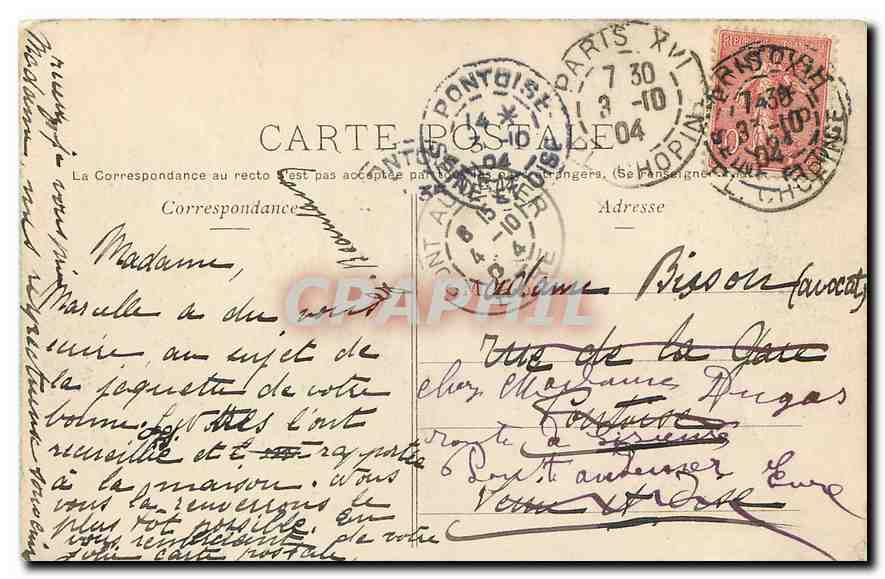 PARIS XVI
7 30
3 -10
04
CHOPIN
PONTOISE
14 *
3 -10
04
SEINE-ET-OISE
7 30
3 -10
04
PONT AUDEMER
EURE
6 15
4 -10
04
CARTE POSTALE
La Correspondance au recto n'est pas acceptée par tous les pays étrangers. (Se renseigner
Correspondance
Adresse
Madame,
Marcelle a du vous
écrire au sujet de
la jaquette de votre
bonne. l'ont
recueillie et rapportée
à la maison. Nous
vous la renverrons le
plus tôt possible. En
vous remerciant de votre
jolie carte postale
je vous prie
Madame, mes respectueux souvenirs
Madame Bisson (avocat)
rue de la Gare
chez Madame Dugas
Pontoise
route à
Pont audemer Eure
Seine et Oise
CPAPHIL